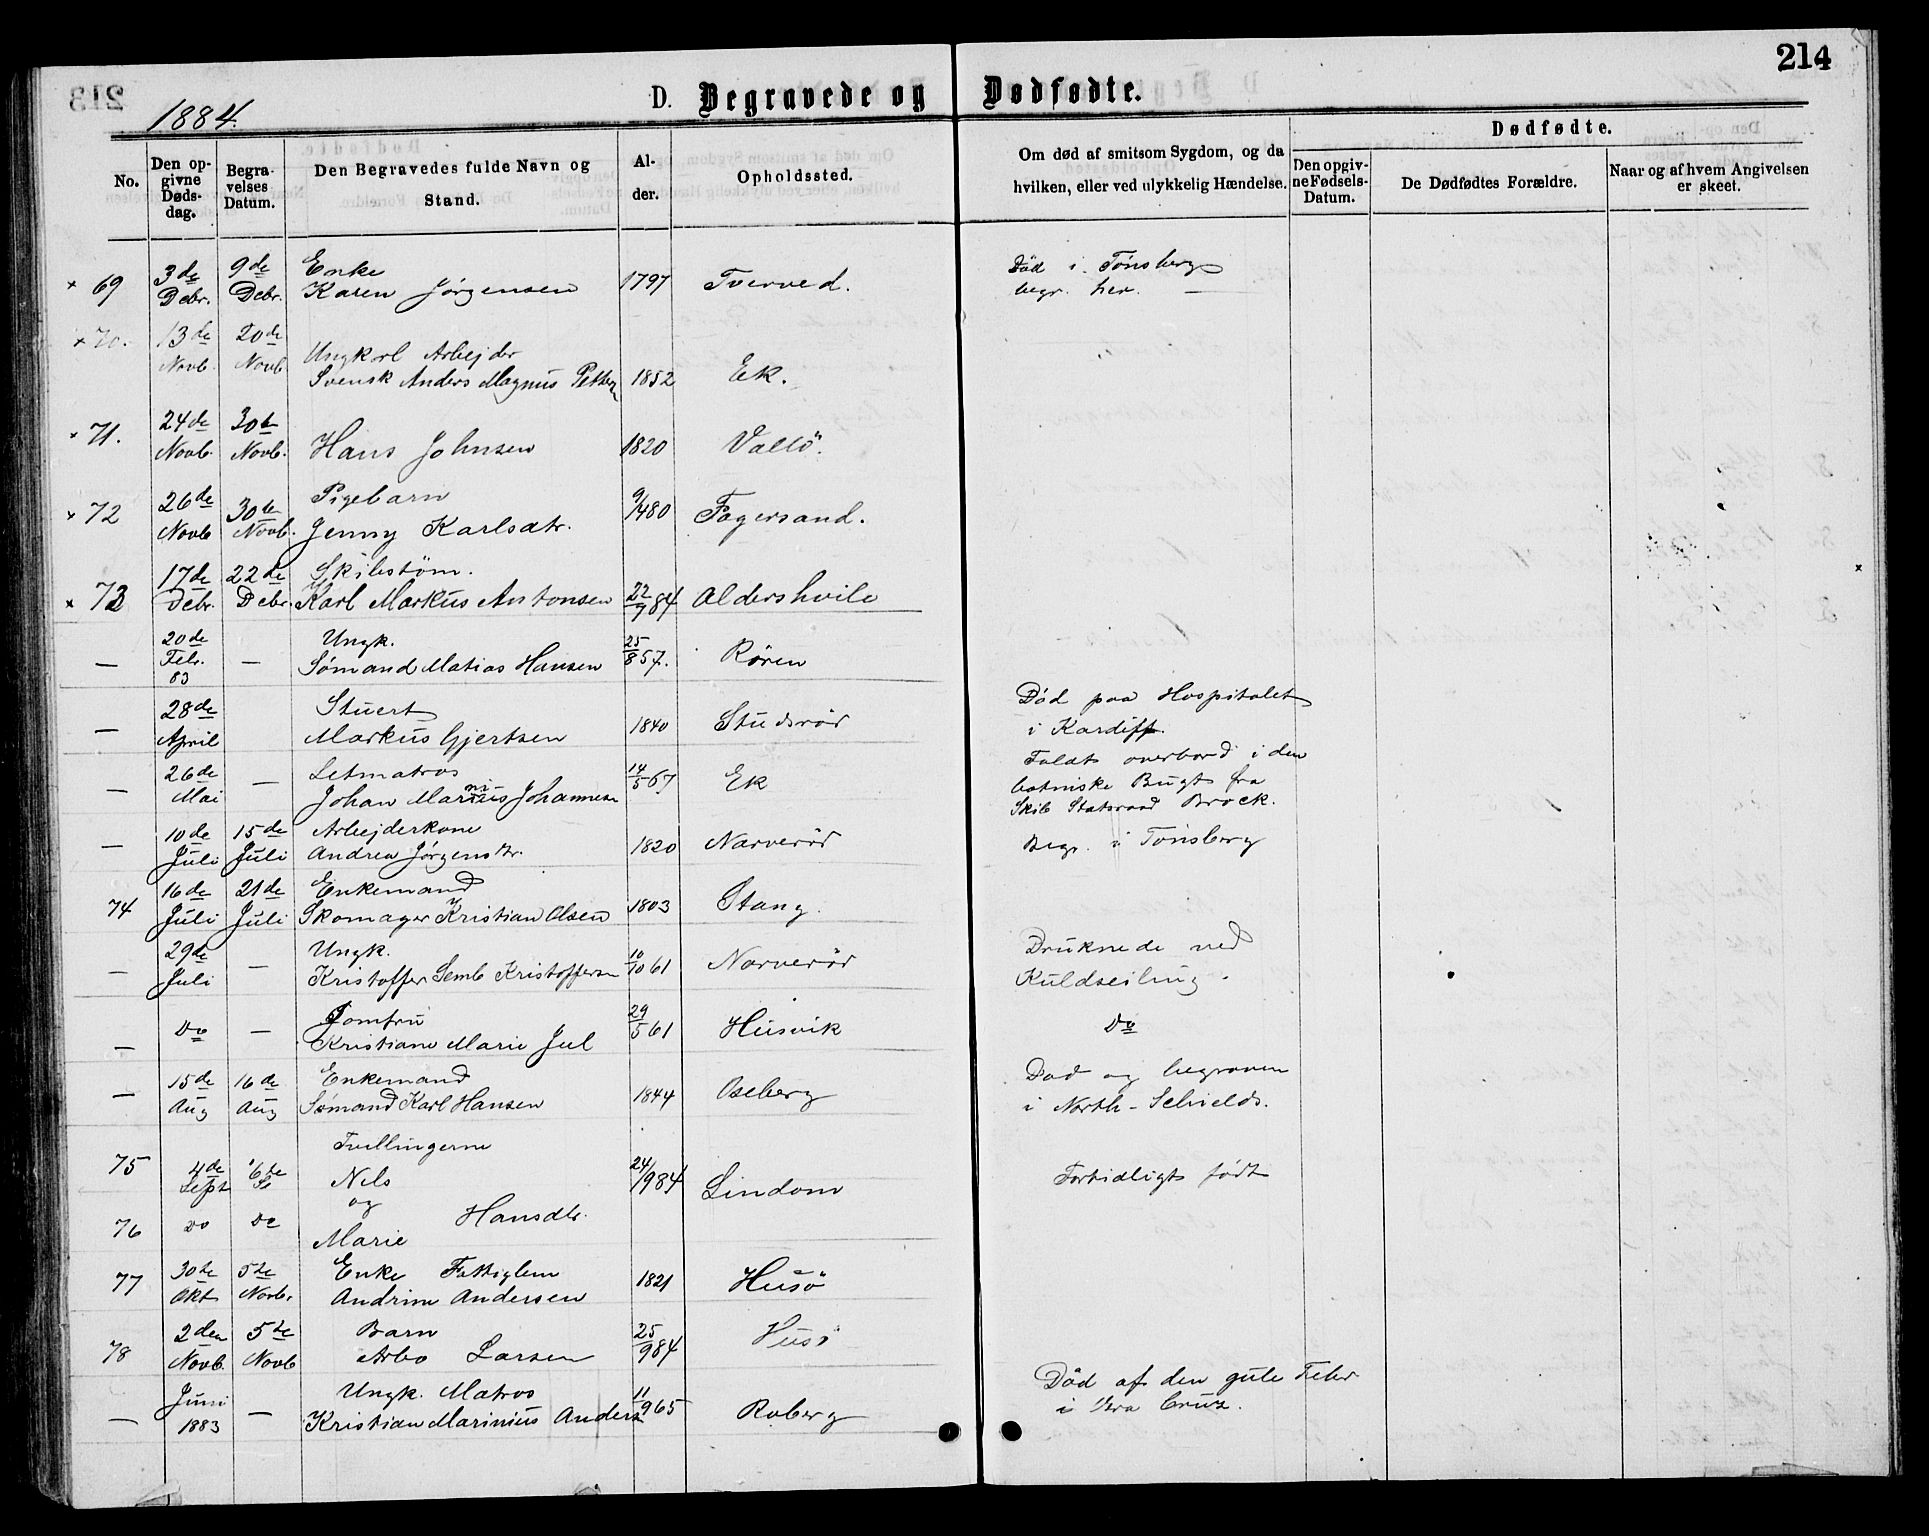 214
1884.
D. Begravede og Dødfødte.
No.
Den opgivne Dødsdag.
Begravelses Datum.
Den Begravedes fulde Navn og Stand.
Alder.
Opholdssted.
Om død af smitsom Sygdom, og da hvilken, eller ved ulykkelig Hændelse.
Dødfødte.
Den opgivne Fødsels-Datum.
De Dødfødtes Forældre.
Naar og af hvem Angivelsen er skeet.
× 69 3de Debr. 9de Debr. Enke
Karen Jørgensen 1797 Tverved. Död i Tönsberg
begr. her.
× 70. 13de Novb. 20de Novb Ungkarl Arbejder
Svensk Anders Magnus 1852 Ek.
× 71. 24de Novb. 30te Novb. Hans Johnsen 1820 Vallö.
× 72 26de Novb 30te Novb. Pigebarn
Jenny Karlsdtr. 9/480 Fagersand.
× 73 17de Debr. 22de Debr. Skibstøm.
Karl Markus Antonsen 22/9 84 Aldershvile
— 20de Febr. 83 — Ungk.
Sømand Matias Hansen 25/8 57. Røren
— 28de April Stuert
Markus Gjertsen 1840 Studsrød Död paa Hospitalet
i Kardiff.
— 26de Mai — Letmatros
Johan Johannesen 14/5 67 Ek Faldt overbord i den
botniske Bugt fra
Skib Statsraad Brock.
— 10de Juli 15de Juli Arbejderkone
Andrea Jørgensdtr. 1820 Narverød Begr. i Tönsberg
74 16de Juli 21de Juli Enkemand
Skomager Kristian Olsen 1803 Stang.
— 29de Juli — Ungk.
Kristoffer Semb Kristoffersen 10/10 61 Narverød Druknede ved
Kuldseiling.
— Do — Jomfru
Kristiane Marie Jul 29/5 61 Husvik Do
— 15de Aug 16de Aug Enkemand
Sømand Karl Hansen 1844 Oseberg Død og begraven
i North-Schields.
75 4de Sept 6te Tvillingerne
Nils 24/984 Lindom Fortidligt födt
og
76 Do Do Marie Hansdtr.
77 30te Okt 5te Novbr. Enke Fattiglem
Andrine Andersen 1821 Husö
78 2den Novb. 5te Novb Barn
Arbo Larsen 25/9 84 Husö
— Juni 1883 — Ungk. Matros
Kristian Marinius Anders 11/9 65 Roberg Död af den gule Feber
i Vera Cruz.